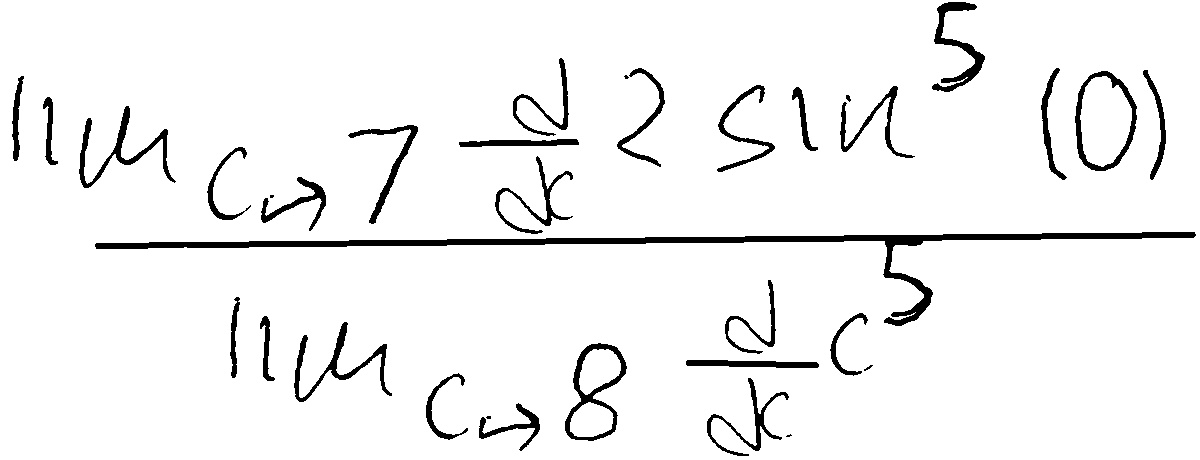 lim c→7 d/dc 2 sin^5 (0)
lim c→8 d/dc c^5